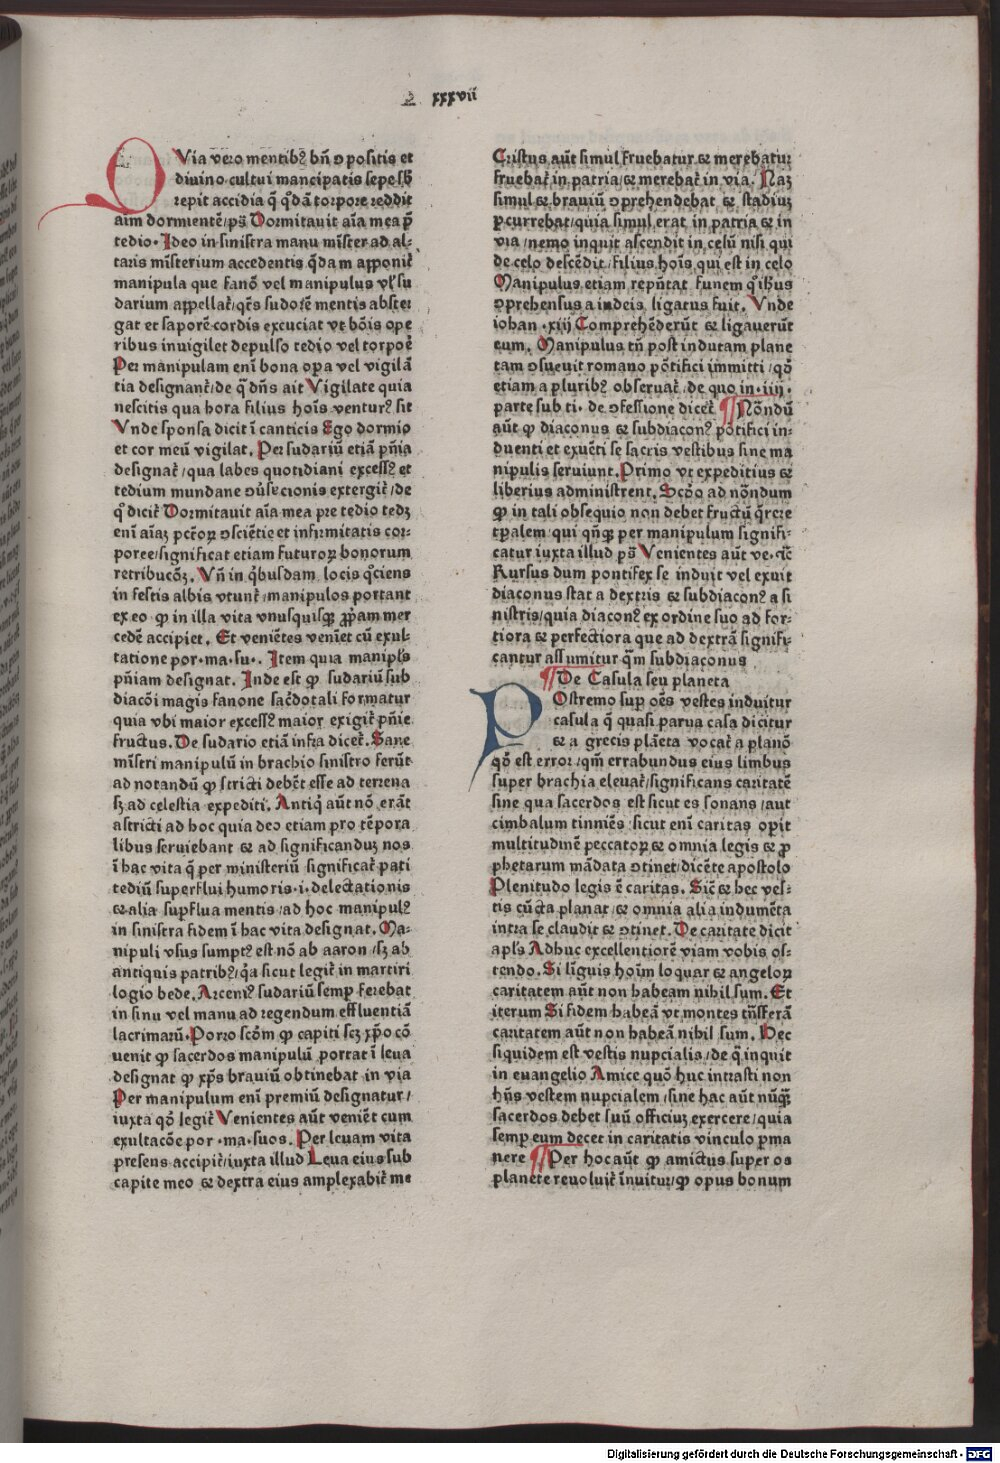 xxxvii
QVia vero mentibꝰ bn̄ ↄpositis et
diuino cultui mancipatis sepe sb̄
repit accidia q̄ qͦdā torpore reddit
aim̄ dormientē/ps̄ Dormitauit aīa mea p̄
tedio. Ideo in sinistra manu mīster ad al-
taris misterium accedentis qͦdam apponit᷑
manipula que fanō vel manipulus vl̓ su
darium appellat᷑/qͦts sudorē mentis abster
gat et saporē cordis excuciat vt bōis ope
ribus inuigilet depulso tedio vel torpoē
Per manipulam enī bona oꝑa vel vigilā
tia designant᷑/de q̄ dn̄s ait Vigilate quia
nescitis qua hora filius hoīs venturꝰ sit
Vnde sponsa dicit ī canticis Ego dormio
et cor meū vigilat. Per sudariū etiā pn̄ia
designat᷑/qua labes quotidiani excessꝰ et
tedium mundane ↄūsecionis extergit᷑/de
qͦ dicit᷑ Dormitauit aīa mea pre tedio tedꝫ
enī aīaꝫ pctōꝝ ↄsciētie et infirmitatis cor-
poree/significat etiam futuroꝝ bonorum
retribucōꝫ. Vn̄ in qͥbusdam locis qͦciens
in festis albis vtunt᷑/manipulos portant
ex eo ꝙ in illa vita vnusquisqꝫ ꝓpam mer
cedē accipiet. Et veniētes veniet cū exul-
tatione por.ma.su.. Item quia manipl̓s
pn̄iam designat. Inde est ꝙ sudariū sub
diacōi magis fanone sac̄dotali formatur
quia vbi maior excessꝰ maior exigit᷑ pn̄ie
fructus. De sudario etiā infra dicet᷑. Sane
mīstri manipulū in brachio sinistro ferūt
ad notandū ꝙ stricti debēt esse ad terrena
sꝫ ad celestia expediti. Antiqͥ aūt nō erāt
astricti ad hoc quia deo etiam pro tēpora
libus seruiebant ⁊ ad significanduꝫ nos
ī hac vita q̄ per ministeriū significat᷑ pati
tediū superflui humoris.i.delectationis
⁊ alia suꝑflua mentis/ad hoc manipulꝰ
in sinistra fidem ī hac vita designat. Ma-
nipuli vsus sumptꝰ est nō ab aaron/sꝫ ab
antiquis patribꝰ/qͣa sicut legit᷑ in martiri
logio bede. Arceniꝰ sudariū semꝑ ferebat
in sinu vel manu ad regendum effluentiā
lacrimaꝝ. Porro scd̄m ꝙ capiti scꝫ xp̄o cō
uenit ꝙ sacerdos manipulū portat ī leua
designat ꝙ xp̄s brauiū obtinebat in via
Per manipulum enī premiū designatur/
iuxta qͦd legit᷑ Venientes aūt veniēt cum
exultacōe por.ma.suos. Per leuam vita
presens accipit᷑/iuxta illud Leua eius sub
capite meo ⁊ dextra eius amplexabit᷑ me
Cristus aūt simul fruebatur ⁊ merebatur
fruebat᷑ in patria/⁊ merebat᷑ in via. Naꝫ
simul ⁊ brauiū ↄprehendebat ⁊ stadiuꝫ
ꝑcurrebat/quia simul erat in patria ⁊ in
via/nemo inquit ascendit in celū nisi qui
de celo descēdit/filius hoīs qui est in celo
Manipulus etiam repn̄tat funem qͥibꝰ
ↄprehensus a iudeis ligatus fuit. Vnde
iohan.xiij Comprehēderūt ⁊ ligauerūt
eum. Manipulus tn̄ post indutam plane
tam ↄsueuit romano pōtifici immitti/qͦd
etiam a pluribꝰ obseruat᷑/de quo in.iiij.
parte sub ti. de ↄfessione dicet᷑ ¶Nōndū
aūt ꝙ diaconus ⁊ subdiaconꝰ pōtifici in-
duenti et exuēti se sacris vestibus sine ma
nipulis seruiunt. Primo vt expeditius ⁊
liberius administrent. Scd̄o ad nōndum
ꝙ in tali obsequio non debet fructū q̄rere
tp̄alem qui qn̄qꝫ per manipulum signifi-
catur iuxta illud ps̄ Venientes aūt ve.⁊c̄
Rursus dum pontifex se induit vel exuit
diaconus stat a dextris ⁊ subdiaconꝰ a si
nistris/quia diaconꝰ ex ordine suo ad for-
tiora ⁊ perfectiora que ad dextrā signifi-
cantur assumitur qͣm subdiaconus
¶De Casula seu planeta
POstremo suꝑ oēs vestes induitur
casula q̄ quasi parua casa dicitur
⁊ a grecis plāeta vocat᷑ a planō
qͦd est error/qm̄ errabundus eius limbus
super brachia eleuat᷑/significans caritatē
sine qua sacerdos est sicut es sonans/aut
cimbalum tinniēs sicut enī caritas oꝑit
multitudinē peccatoꝝ ⁊ omnia legis ⁊ ꝓ
phetarum mādata ↄtinet/dicēte apostolo
Plenitudo legis ē caritas. Sic̄ ⁊ hec ves-
tis cūcta planat/⁊ omnia alia indumēta
intra se claudit ⁊ ↄtinet. De caritate dicit
apl̓s Adhuc excellentiorē viam vobis os-
tendo. Si līguis hoīm loquar ⁊ angeloꝝ
caritatem aūt non habeam nihil sum. Et
iterum Si fidem habeā vt montes trāsferā
caritatem aūt non habeā nihil sum. Hec
siquidem est vestis nupcialis/de q̄ inquit
in euangelio Amice quō huc intrasti non
hn̄s vestem nupcialem/sine hac aūt nūqꝫ
sacerdos debet suū officiuꝫ exercere/quia
semꝑ eum decet in caritatis vinculo ꝑma
nere ¶Per hoc aūt ꝙ amictus super os
planete reuoluit᷑ īnuitur/ꝙ opus bonum
Digitalisierung gefördert durch die Deutsche Forschungsgemeinschaft - DFG